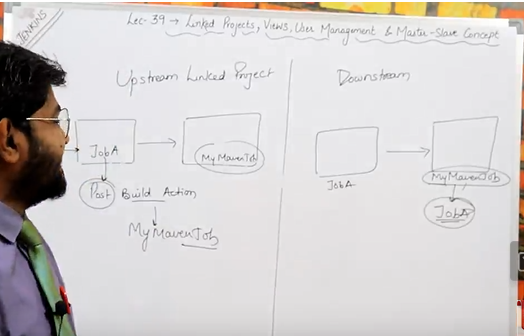 JENKINS
Lec-39 → Linked Projects, Views, User Management & Master-Slave Concept
Upstream Linked Project
Downstream
JobA
MyMavenJob
Post Build Action
MyMavenJob
JobA
MyMavenJob
JobA